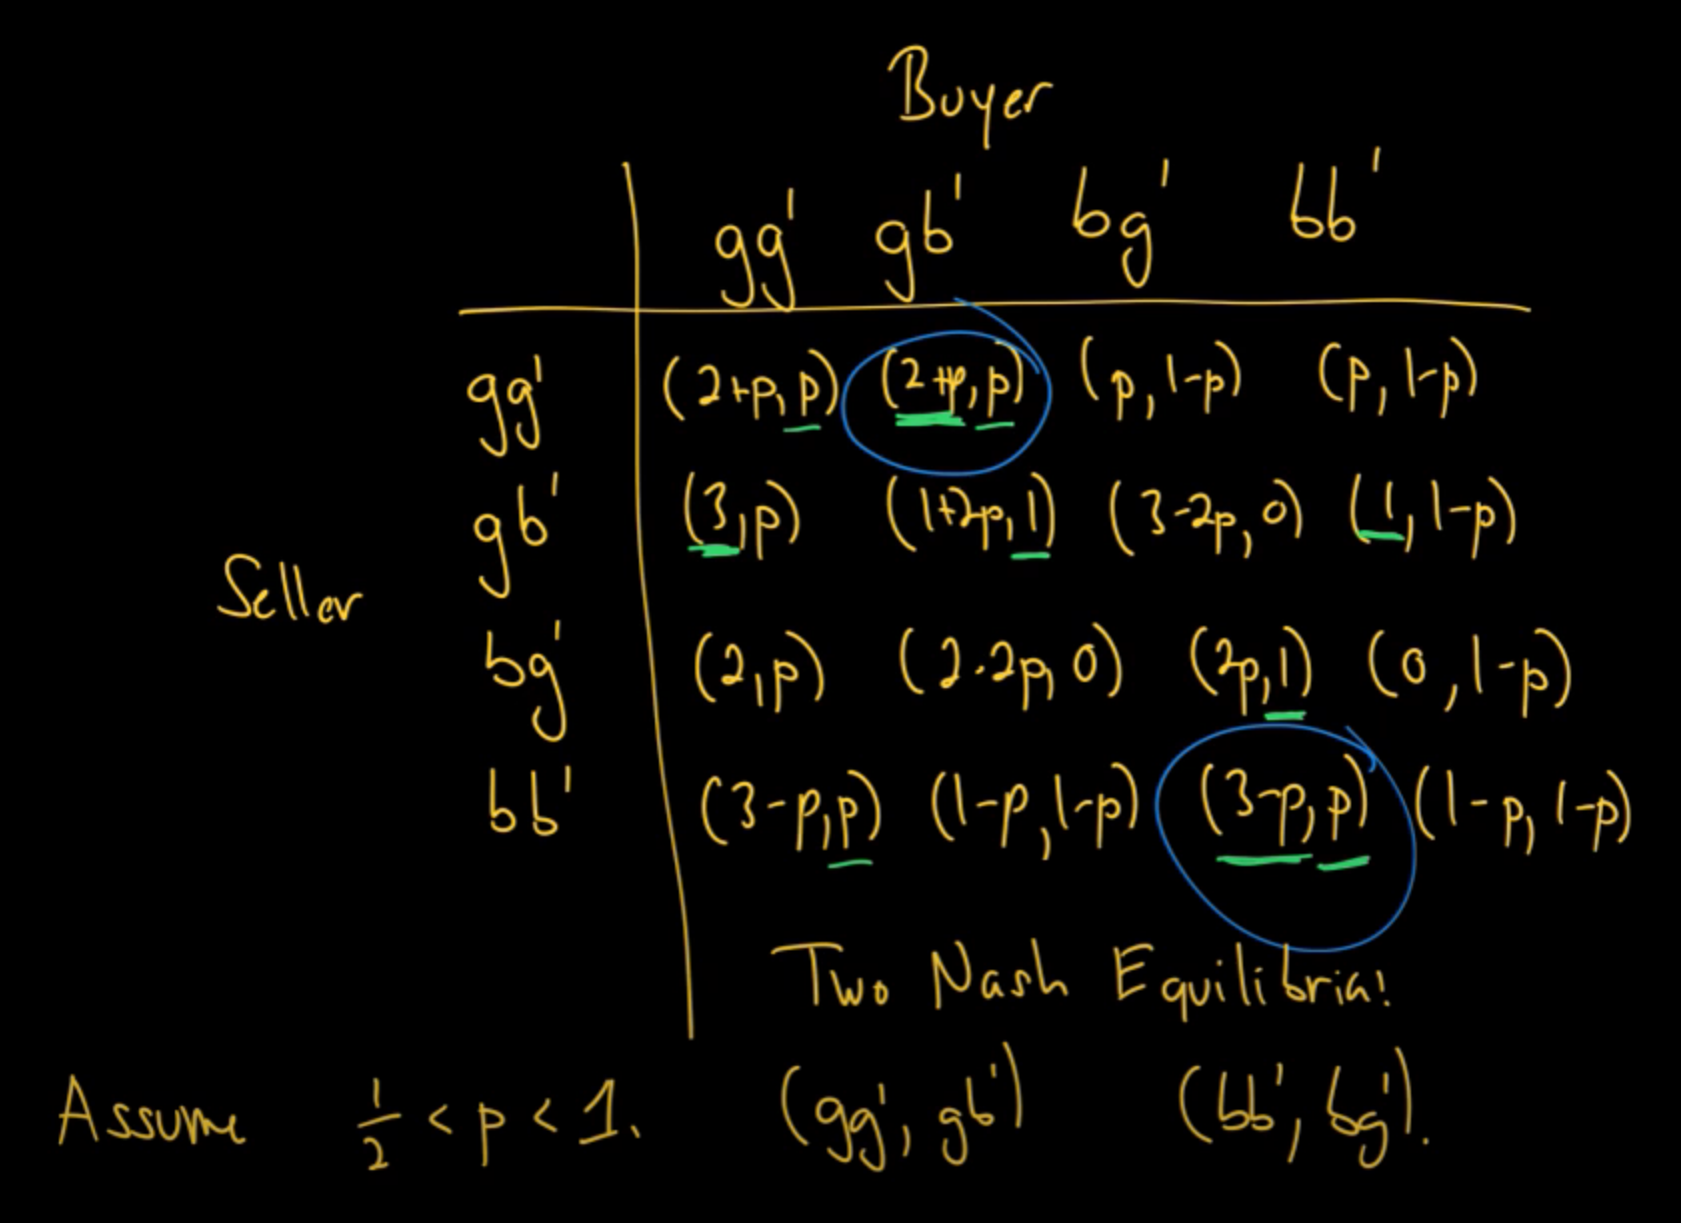 Buyer
gg' gb' bg' bb'
gg' (2+p, p) (2+p, p) (p, 1-p) (p, 1-p)
gb' (3, p) (1+2p, 1) (3-2p, 0) (1, 1-p)
Seller
bg' (2, p) (2-2p, 0) (2p, 1) (0, 1-p)
bb' (3-p, p) (1-p, 1-p) (3-p, p) (1-p, 1-p)
Two Nash Equilibria!
Assume 1/2 < p < 1. (gg', gb') (bb', bg').